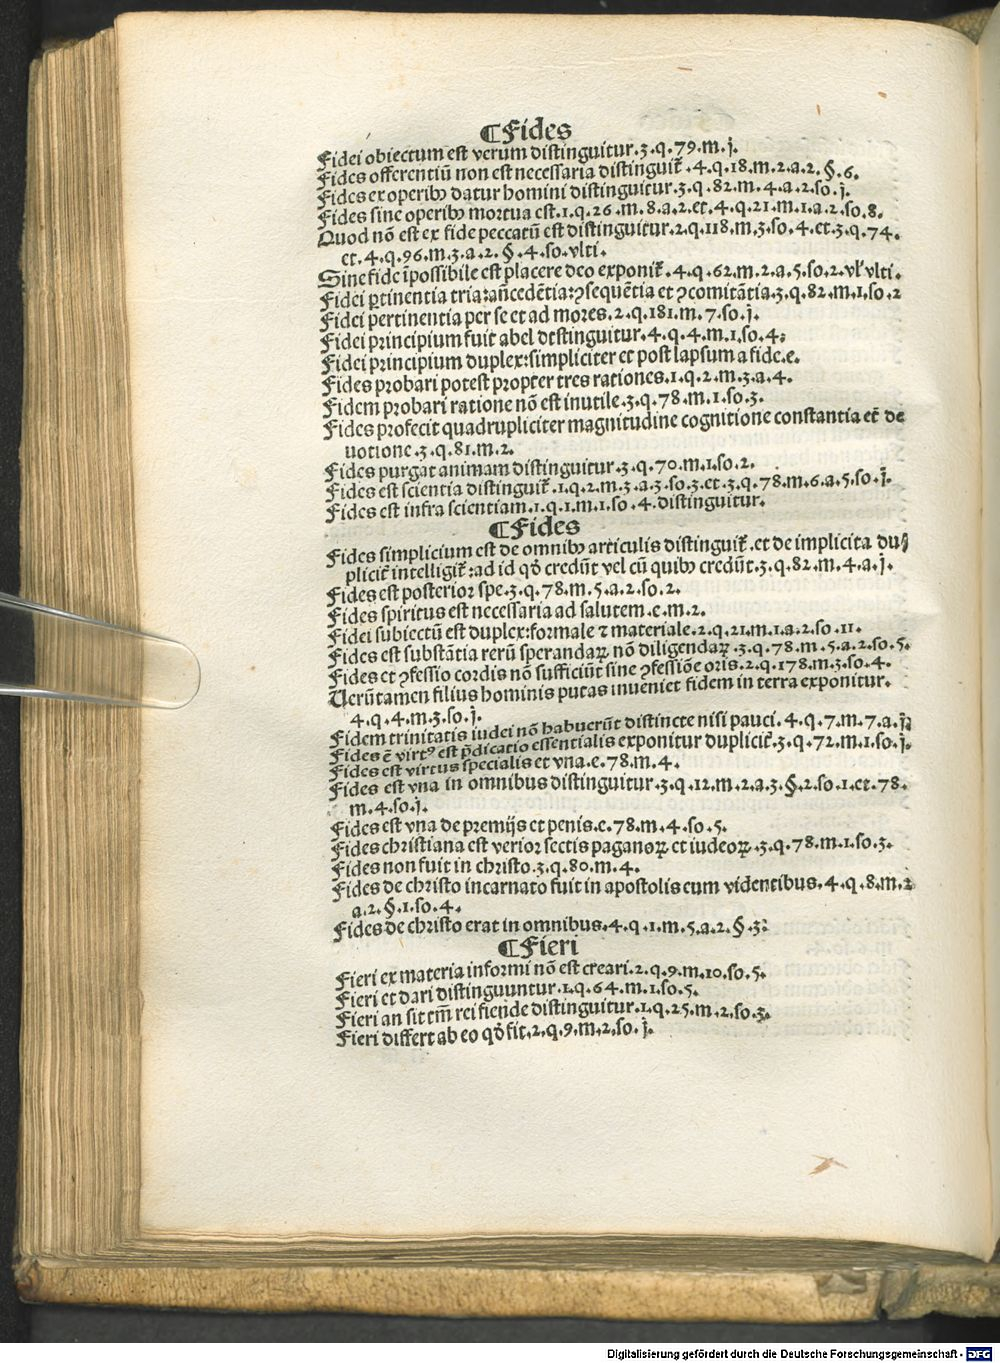 ¶Fides
Fidei obiectum est verum distinguitur.3.q.79.m.j.
Fides offerentiū non est necessaria distinguit̄.4.q.18.m.2.a.2.§.6.
Fides ex operibꝫ datur homini distinguitur.3.q.82.m.4.a.2.so.j.
Fides sine operibꝫ mortua est.1.q.26.m.8.a.2.et.4.q.21.m.1.a.2.so.8.
Quod nō est ex fide peccatū est distinguitur.2.q.118.m.3.so.4.et.3.q.74.
et.4.q.96.m.3.a.2.§.4.so.vlti.
Sine fide īpossibile est placere deo exponit̄.4.q.62.m.2.a.5.so.2.vl'vlti.
Fidei ꝑtinentia tria:an̄cedētia:ꝯsequētia et ꝯcomitātia.3.q.82.m.1.so.2
Fidei pertinentia per se et ad mores.2.q.181.m.7.so.j.
Fidei principium fuit abel destinguitur.4.q.4.m.1.so.4:
Fidei principium duplex:simpliciter et post lapsum a fide.e.
Fides probari potest propter tres rationes.1.q.2.m.3.a.4.
Fidem probari ratione nō est inutile.3.q.78.m.1.so.3.
Fides profecit quadrupliciter magnitudine cognitione constantia et̄ de
uotione.3.q.81.m.2.
Fides purgat animam distinguitur.3.q.70.m.1.so.2.
Fides est scientia distinguit̄.1.q.2.m.3.a.3.so.3.et.3.q.78.m.6.a.5.so.j.
Fides est infra scientiam.1.q.1.m.1.so.4.distinguitur.
¶Fides
Fides simplicium est de omnibꝫ articulis distinguit̄.et de implicita du
plicit̄ intelligit̄:ad id qđ credūt vel cū quibꝫ credūt.3.q.82.m.4.a.j.
Fides est posterior spe.3.q.78.m.5.a.2.so.2.
Fides spiritus est necessaria ad salutem.e.m.2.
Fidei subiectū est duplex:formale ⁊ materiale.2.q.21.m.1.a.2.so.11.
Fides est substātia rerū sperandaꝝ nō diligendaꝝ.3.q.78.m.5.a.2.so.5.
Fides et ꝯfessio cordis nō sufficiūt sine ꝯfessiōe oris.2.q.178.m.3.so.4.
Uerūtamen filius hominis putas inueniet fidem in terra exponitur.
4.q.4.m.3.so.j.
Fidem trinitatis iudei nō habuerūt distincte nisi pauci.4.q.7.m.7.a.j.
Fides ē virtꝰ est p̄dicatio essentialis exponitur duplicit̄.3.q.72.m.1.so.j.
Fides est virtus specialis et vna.e.78.m.4.
Fides est vna in omnibus distinguitur.3.q.12.m.2.a.3.§.2.so.1.et.78.
m.4.so.j.
Fides est vna de premijs et penis.e.78.m.4.so.5.
Fides christiana est verior sectis paganoꝝ et iudeoꝝ.3.q.78.m.1.so.3.
Fides non fuit in christo.3.q.80.m.4.
Fides de christo incarnato fuit in apostolis cum videntibus.4.q.8.m.2
a.2.§.1.so.4.
Fides de christo erat in omnibus.4.q.1.m.5.a.2.§.3:
¶Fieri
Fieri ex materia informi nō est creari.2.q.9.m.10.so.5.
Fieri et dari distinguuntur.1.q.64.m.1.so.5.
Fieri an sit tm̄ rei fiende distinguitur.1.q.25.m.2.so.3.
Fieri differt ab eo qđ fit.2.q.9.m.2.so.j.
Digitalisierung gefördert durch die Deutsche Forschungsgemeinschaft - DFG